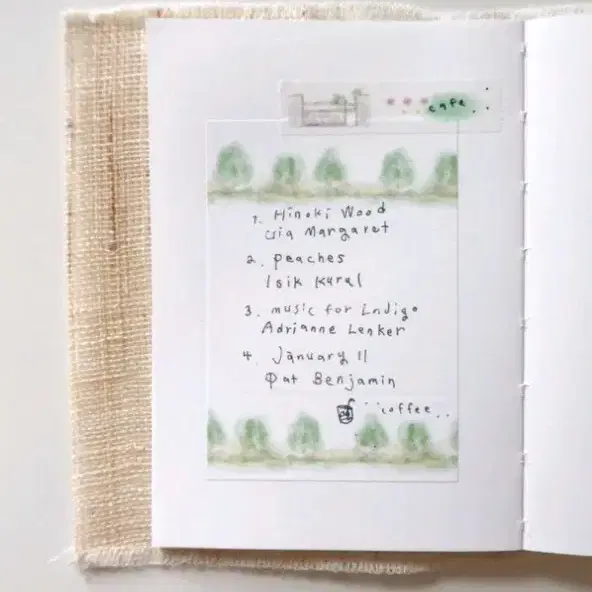 cafe
1. Hinoki Wood
Gia Margaret
2. peaches
Isik Kural
3. music for indigo
Adrianne Lenker
4. January 11
Pat Benjamin
coffee